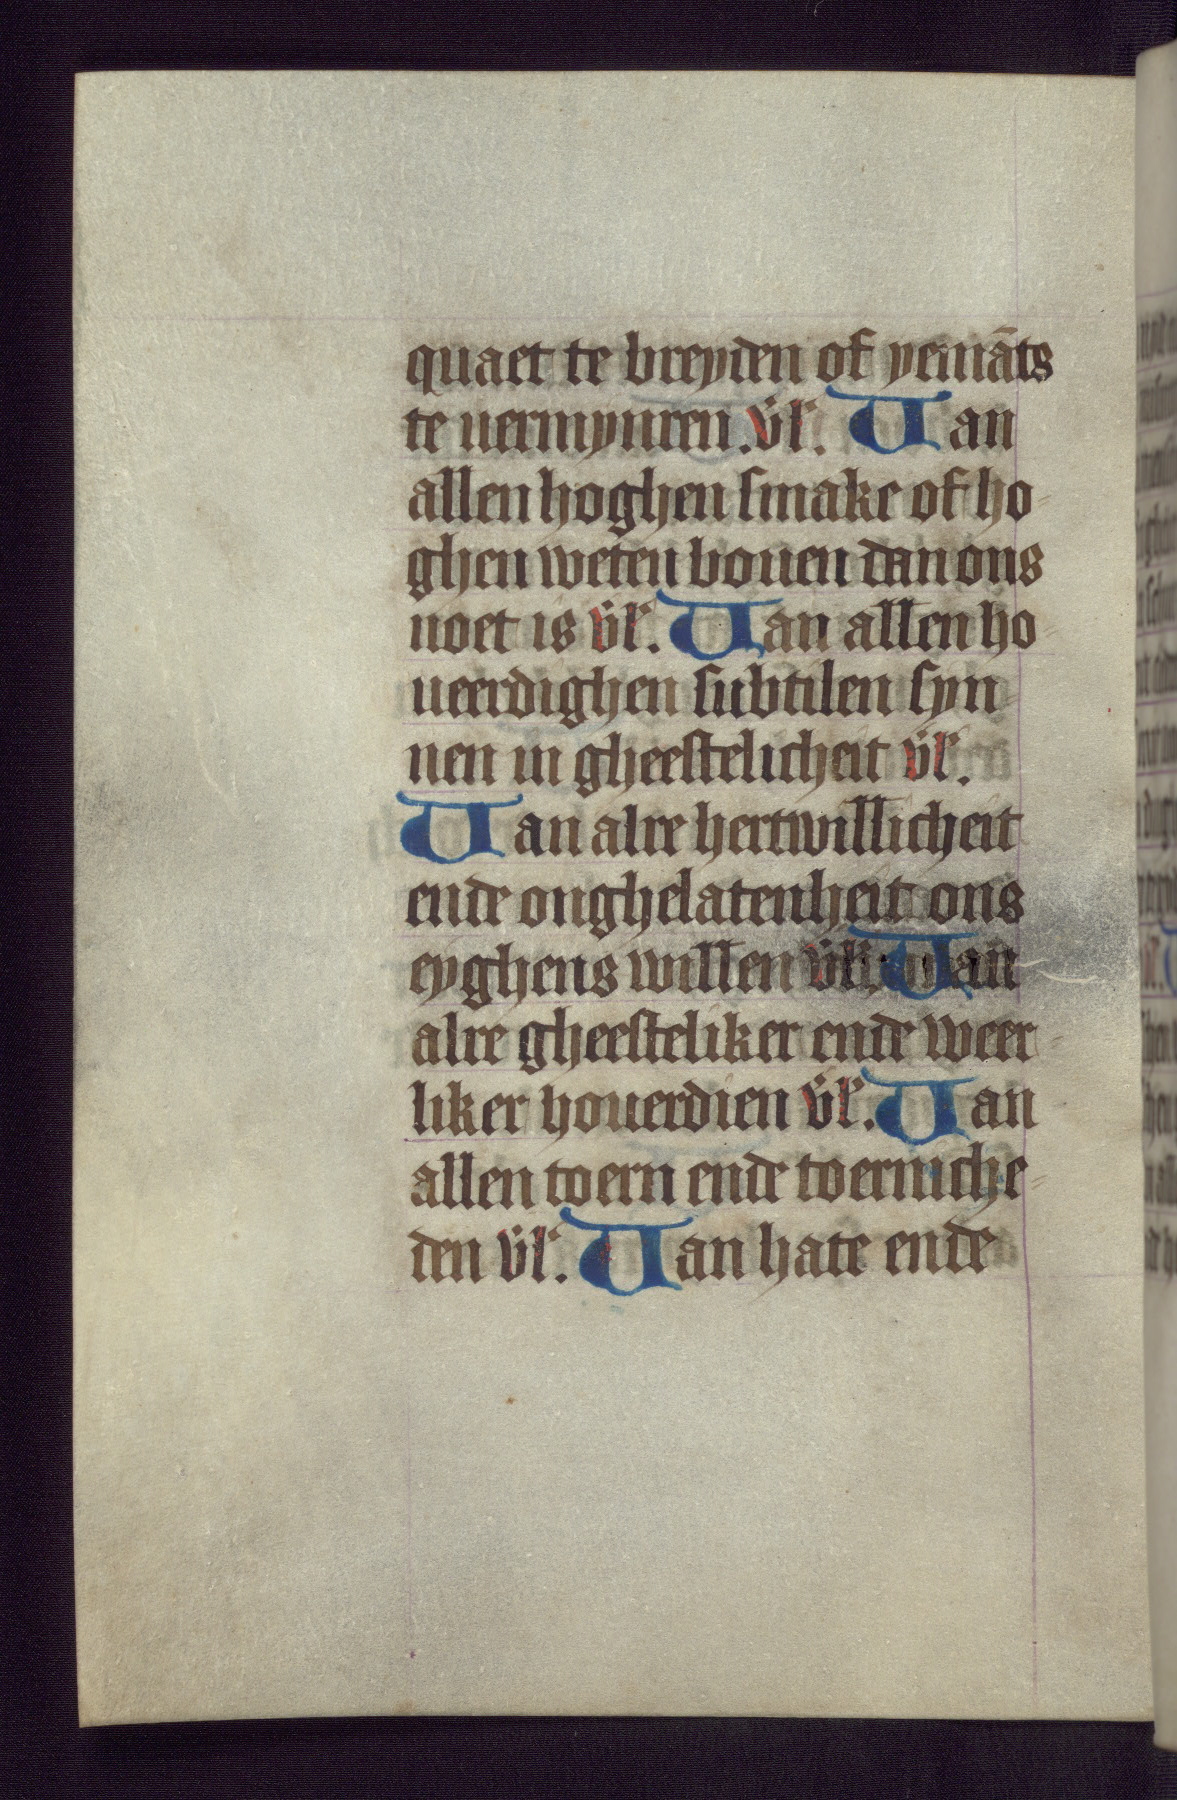 quaet te breyden of yemāts
te uermynren. v̈l'. Uan
allen hoghen smake of ho
ghen weten bouen dan ons
noet is v̈l'. Uan allen ho
ueerdighen subtilen syn
nen in gheestelicheit v̈l'.
Uan alre hertwillicheit
ende onghelatenheit ons
eyghens willen v̈l'. Uan
alre gheesteliker ende weer
liker houerdien v̈l'. Uan
allen toern ende toerniche
den v̈l'. Uan hate ende